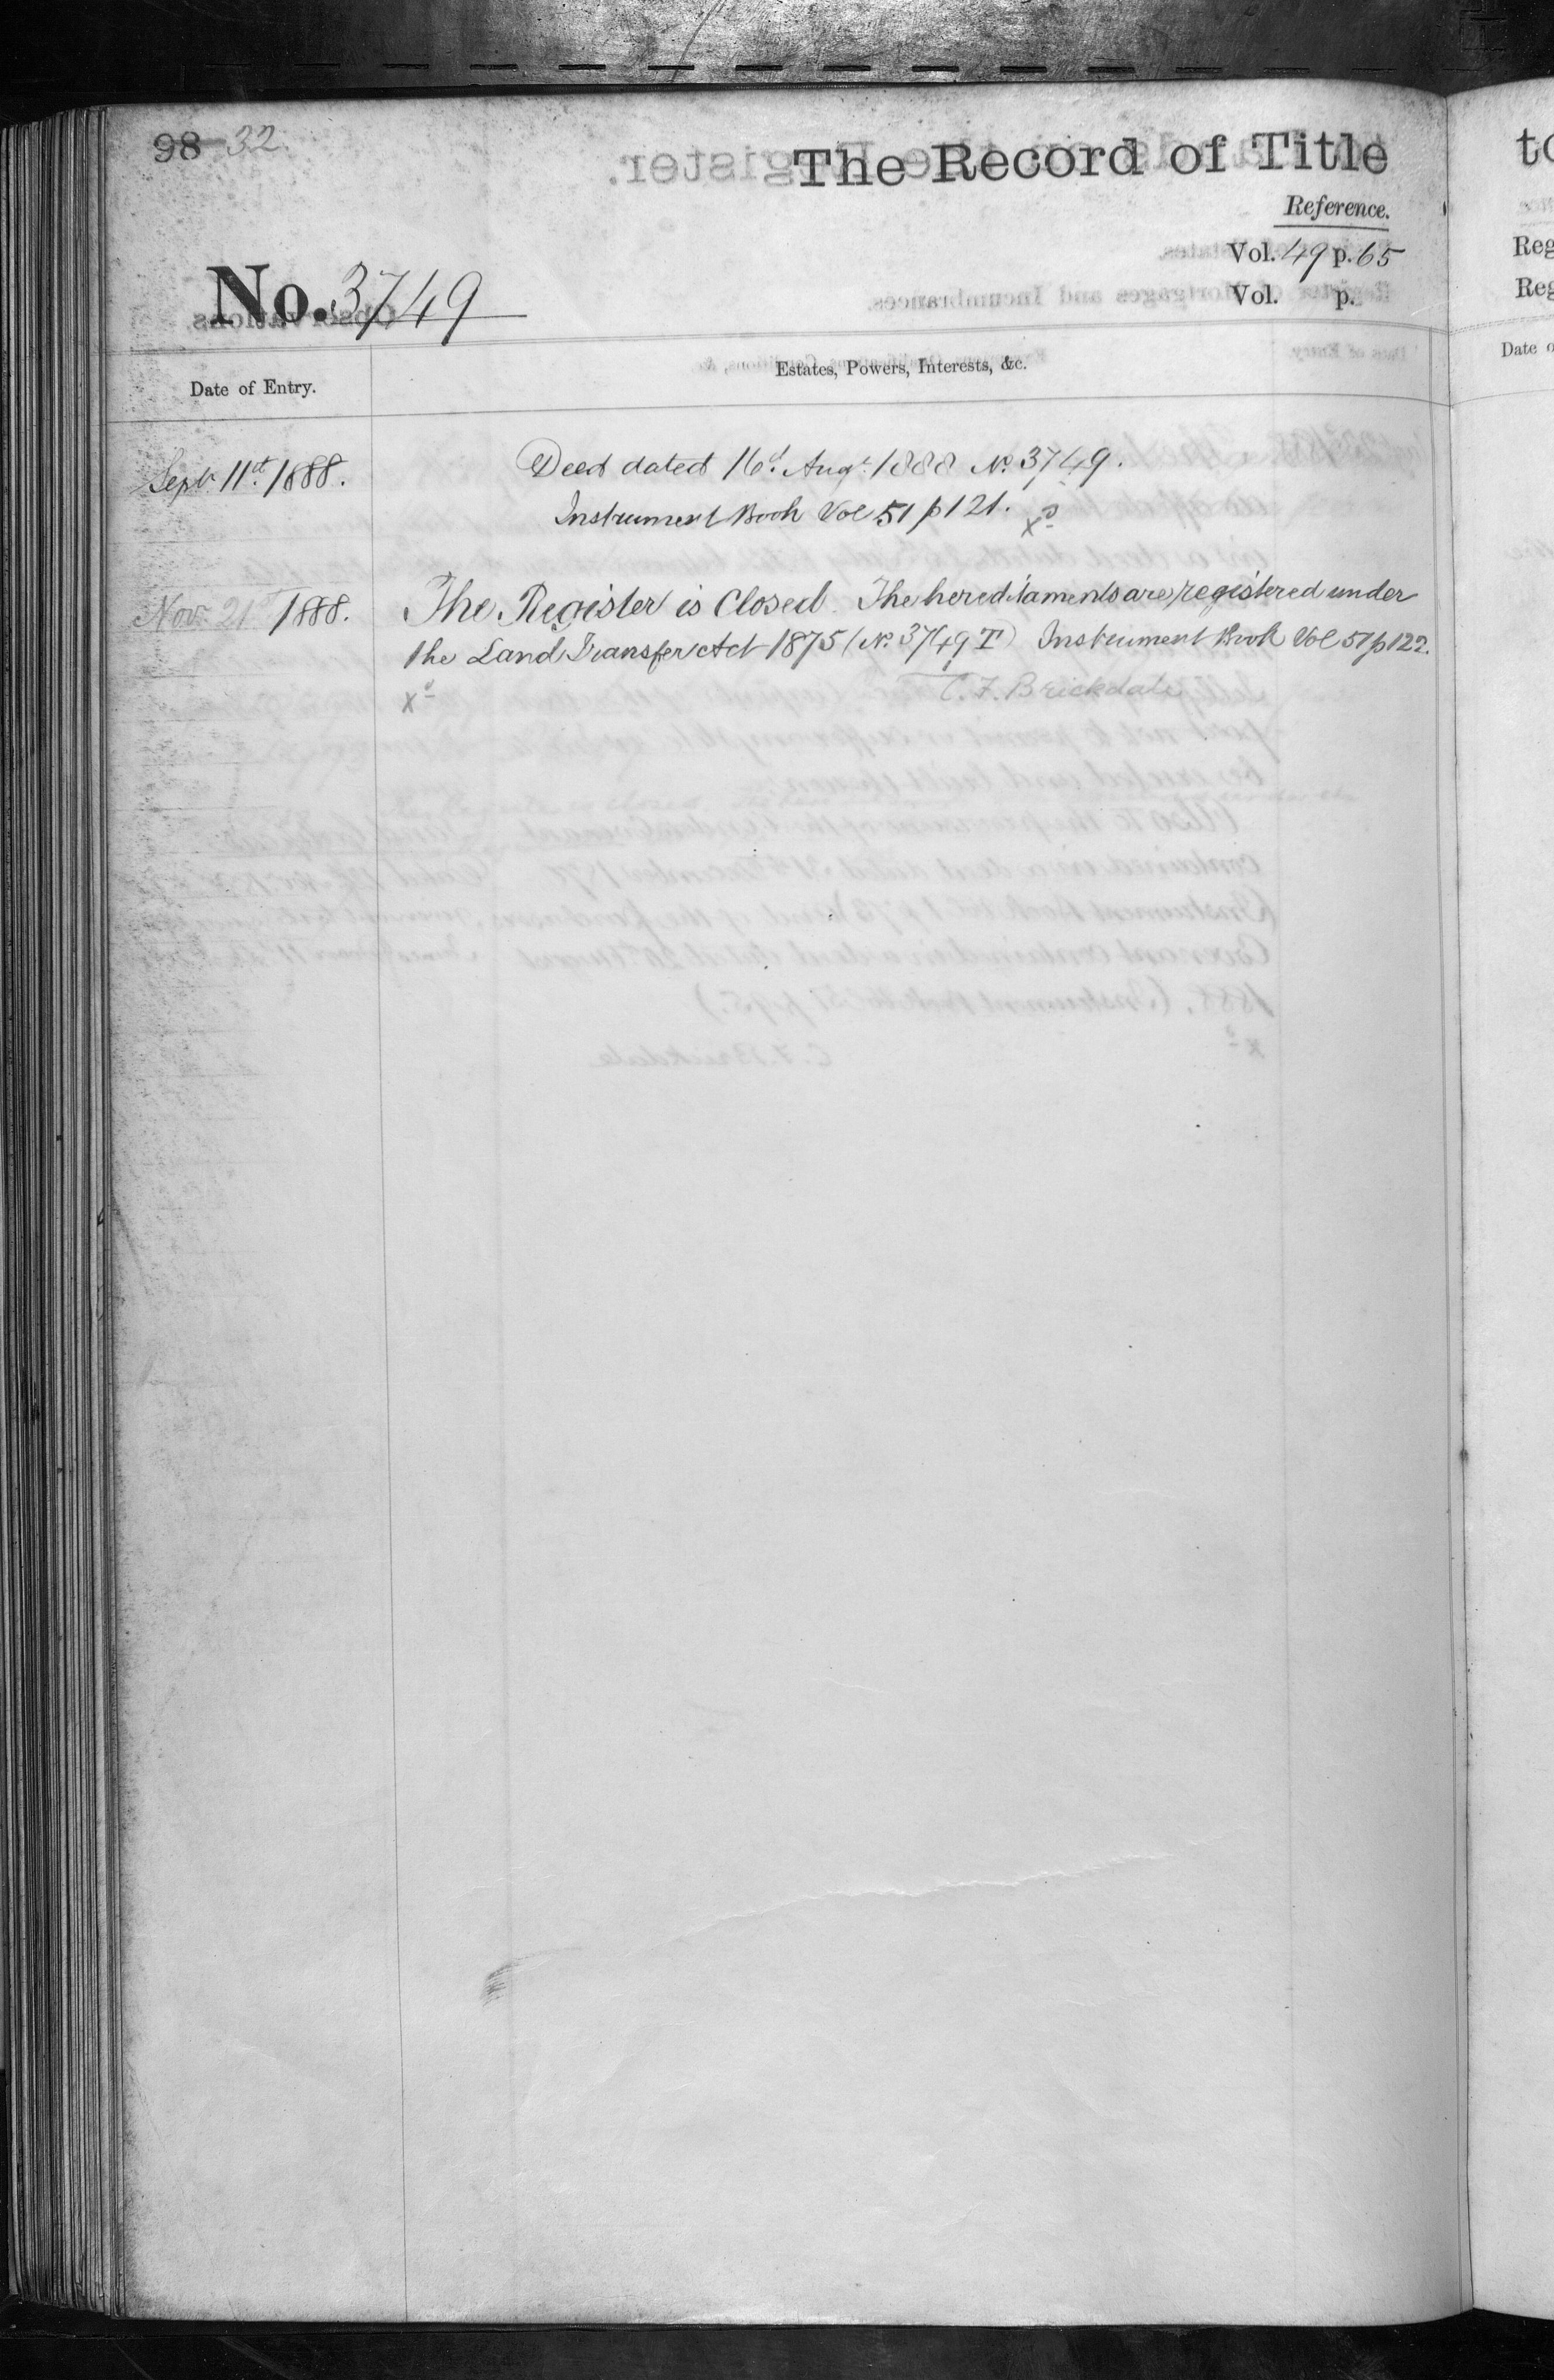 98 32.
The Record of Title
Reference.
Vol. 49 p. 65
Vol. p.
No. 3749
Date of Entry.
Estates, Powers, Interests, &c.
Sept. 11th. 1888.
Deed dated 16th. Augt. 1888 No. 3749.
Instrument Book Vol 51 p 121. xd
Nov. 21st 1888.
The Register is Closed. The hereditaments are registered under
the Land Transfer Act 1875 (No. 3749 T) Instrument Book Vol 51 p 122.
xd
C. F. Brickdale
to
Reg
Reg
Date o